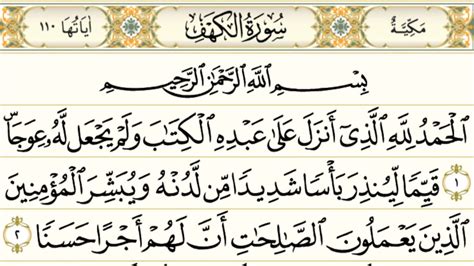 مَكِّيَّة سُورَةُ الْكَهْفِ آيَاتُهَا ١١٠
بِسْمِ اللَّهِ الرَّحْمَٰنِ الرَّحِيمِ
الْحَمْدُ لِلَّهِ الَّذِي أَنزَلَ عَلَىٰ عَبْدِهِ الْكِتَابَ وَلَمْ يَجْعَل لَّهُ عِوَجًا ۜ
١ قَيِّمًا لِّيُنذِرَ بَأْسًا شَدِيدًا مِّن لَّدُنْهُ وَيُبَشِّرَ الْمُؤْمِنِينَ
الَّذِينَ يَعْمَلُونَ الصَّالِحَاتِ أَنَّ لَهُمْ أَجْرًا حَسَنًا ٢